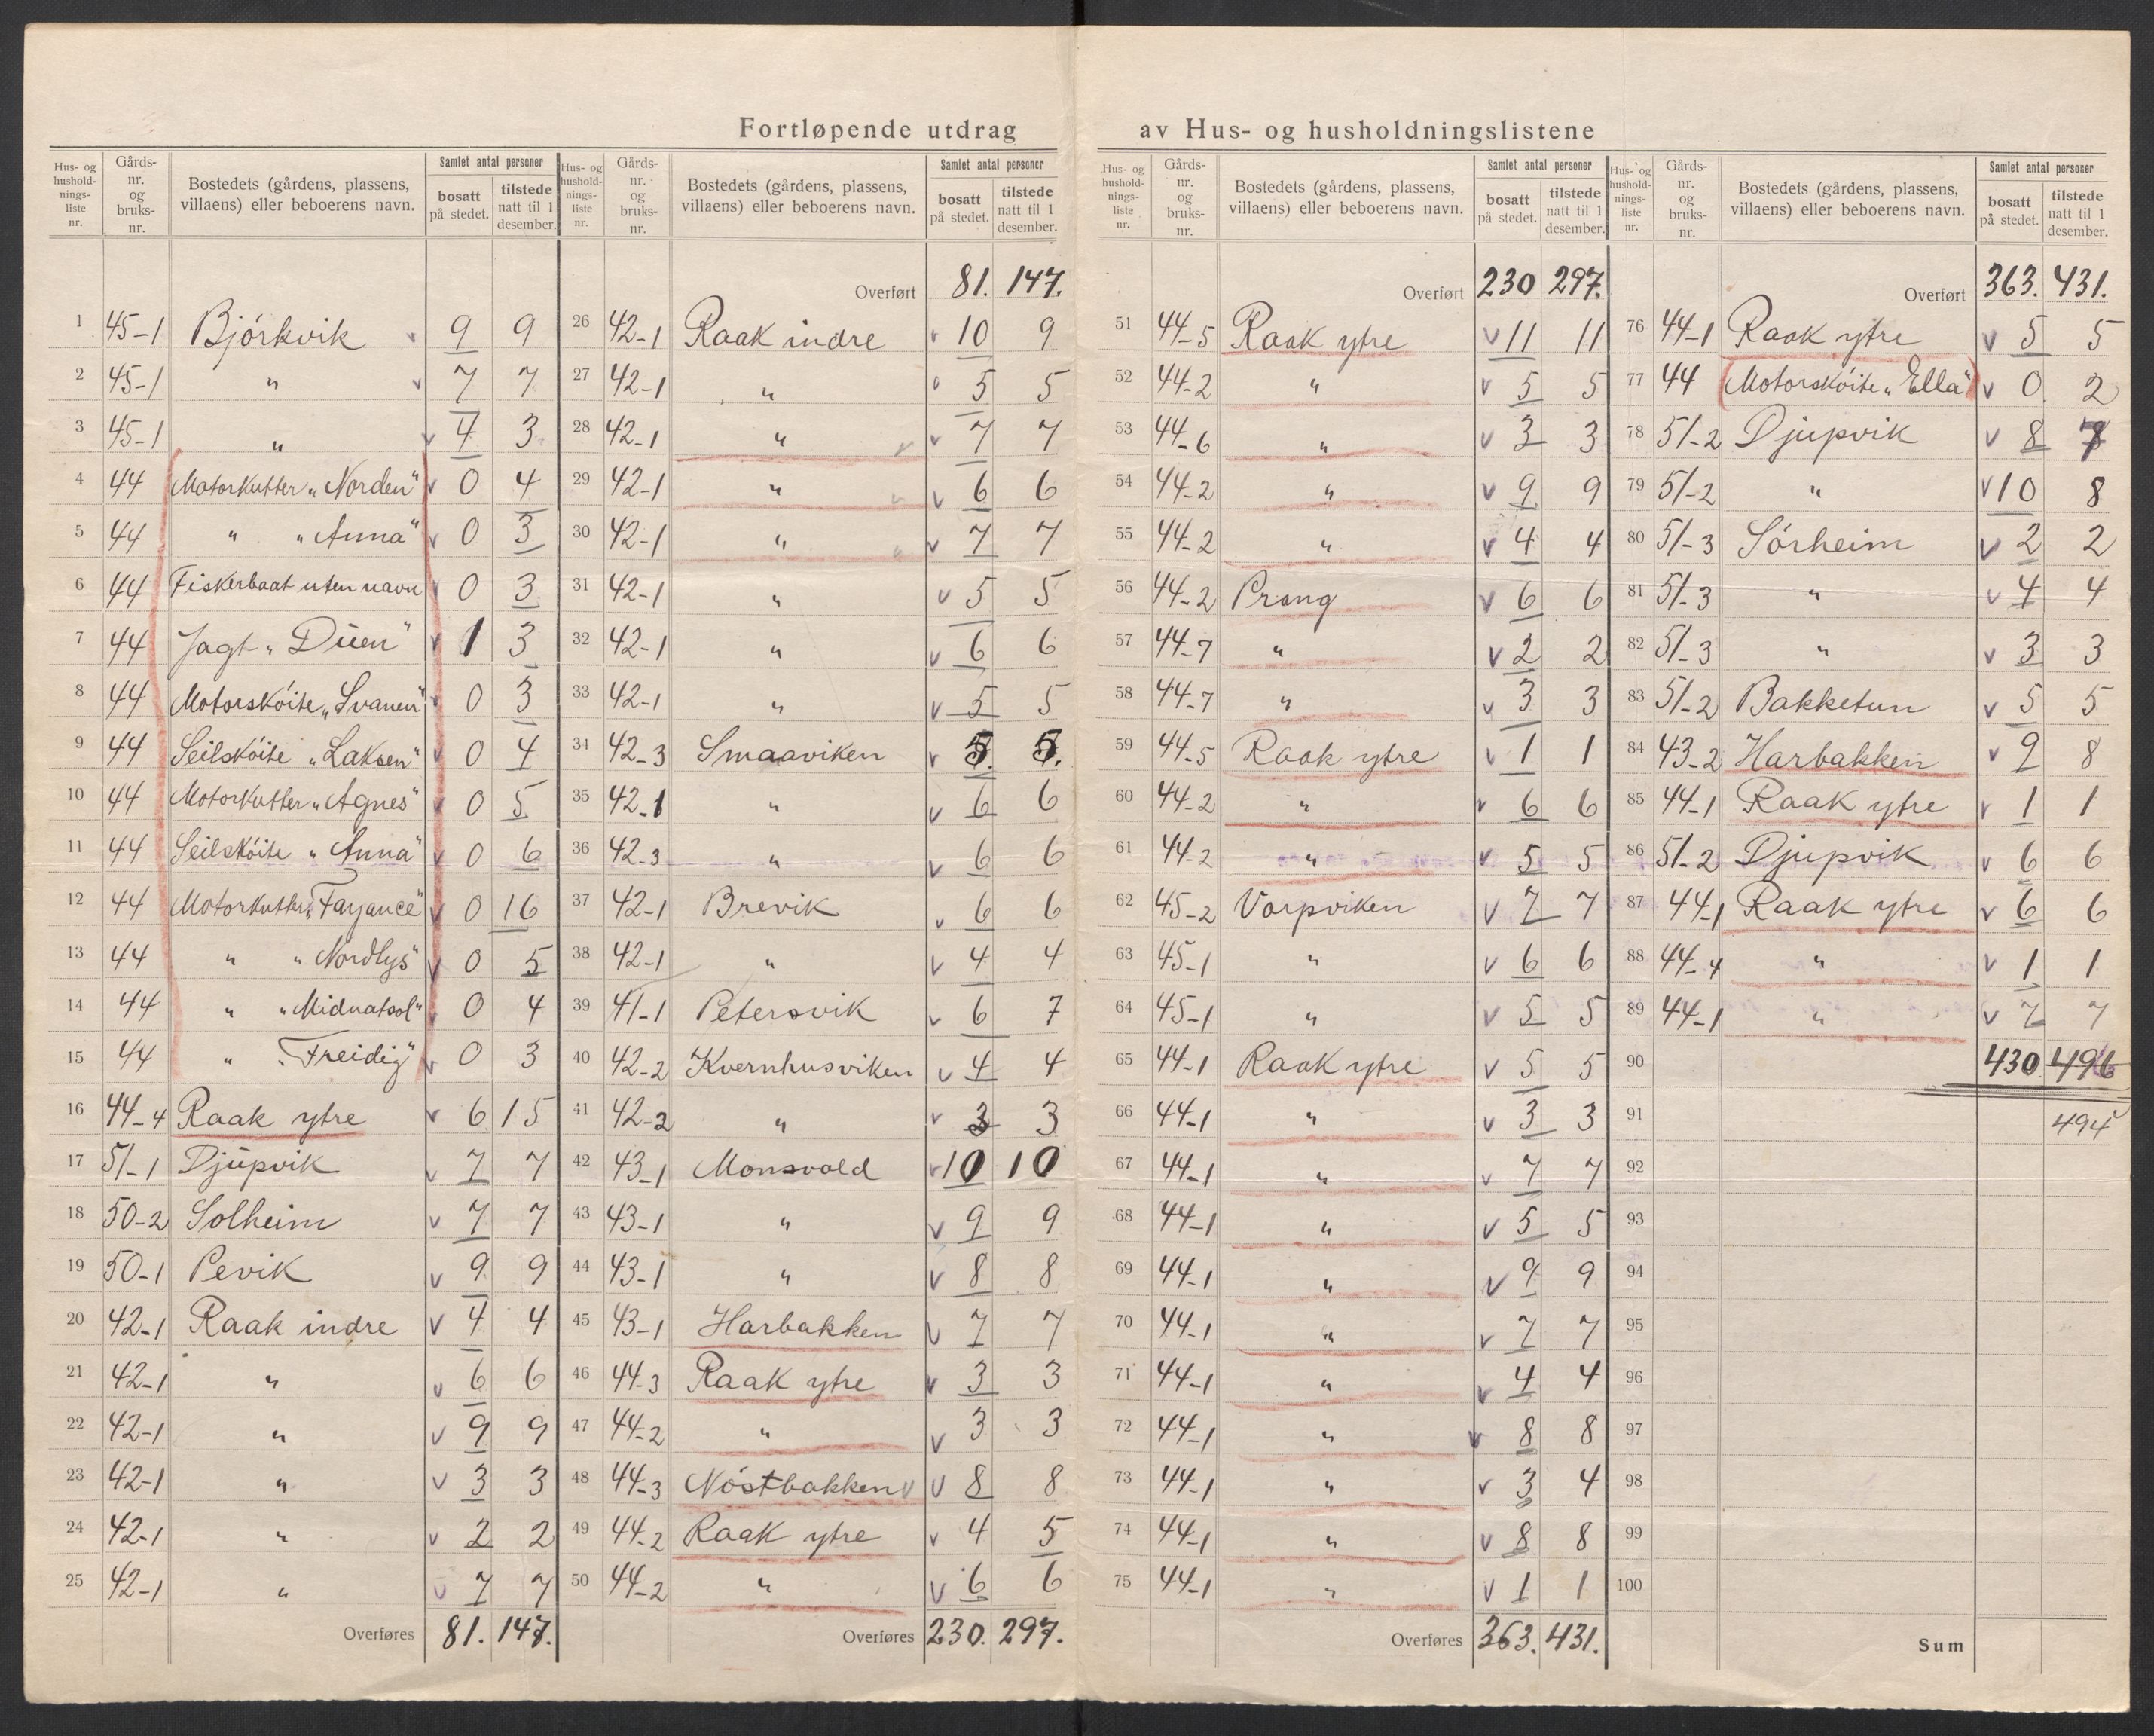 Fortløpende utdrag av Hus- og husholdningslistene
Hus- og hushold-nings-liste nr. | Gårds-nr. og bruks-nr. | Bostedets (gårdens, plassens, villaens) eller beboerens navn. | Samlet antal personer | bosatt på stedet. | tilstede natt til 1 desember.
1 45-1 Bjórkvik 9 9
2 45-1 " 7 7
3 45-1 " 4 3
4 44 Motorkutter „Norden" 0 4
5 44 " „Anna" 0 3
6 44 Fiskerbaat uten navn 0 3
7 44 Jagt „Düen" 1 3
8 44 Motorskóite „Svanen" 0 3
9 44 Seilskóite „Laksen" 0 4
10 44 Motorkutter „Agnes" 0 5
11 44 Seilskóite „Anna" 0 6
12 44 Motorkutter 0 16
13 44 " „Nordlys" 0 5
14 44 " „Midnatsol" 0 4
15 44 " „Freidig" 0 3
16 44-4 Raak ytre 6 15
17 51-1 Djüpvik 7 7
18 50-2 Solheim 7 7
19 50-1 Pevik 9 9
20 42-1 Raak indre 4 4
21 42-1 " 6 6
22 42-1 " 9 9
23 42-1 " 3 3
24 42-1 " 2 2
25 42-1 " 7 7
Overføres 81. 147.
Hus- og hushold-nings-liste nr. | Gårds-nr. og bruks-nr. | Bostedets (gårdens, plassens, villaens) eller beboerens navn. | Samlet antal personer | bosatt på stedet. | tilstede natt til 1 desember.
Overført 81. 147.
26 42-1 Raak indre 10 9
27 42-1 " 5 5
28 42-1 " 7 7
29 42-1 " 6 6
30 42-1 " 7 7
31 42-1 " 5 5
32 42-1 " 6 6
33 42-1 " 5 5
34 42-3 Smaaviken 5. 5.
35 42-1 " 6 6
36 42-3 " 6 6
37 42-1 Brevik 6 6
38 42-1 " 4 4
39 41-1 Petersvik 6 7
40 42-2 Kvernhusviken 4 4
41 42-2 " 3 3
42 43-1 Monsvold 10 10
43 43-1 " 9 9
44 43-1 " 8 8
45 43-1 Harbakken 7 7
46 44-3 Raak ytre 3 3
47 44-2 " 3 3
48 44-3 Nóstbakken 8 8
49 44-2 Raak ytre 4 5
50 44-2 " 6 6
Overføres 230. 297.
Hus- og hushold-nings-liste nr. | Gårds-nr. og bruks-nr. | Bostedets (gårdens, plassens, villaens) eller beboerens navn. | Samlet antal personer | bosatt på stedet. | tilstede natt til 1 desember.
Overført 230 297.
51 44-5 Raak ytre 11 11
52 44-2 " 5 5
53 44-6 " 3 3
54 44-2 " 9 9
55 44-2 " 4 4
56 44-2 Prang 6 6
57 44-7 " 2 2
58 44-7 " 3 3
59 44-5 Raak ytre 1 1
60 44-2 " 6 6
61 44-2 " 5 5
62 45-2 Vorpviken 7 7
63 45-1 " 6 6
64 45-1 " 5 5
65 44-1 Raak ytre 5 5
66 44-1 " 3 3
67 44-1 " 7 7
68 44-1 " 5 5
69 44-1 " 9 9
70 44-1 " 7 7
71 44-1 " 4 4
72 44-1 " 8 8
73 44-1 " 3 4
74 44-1 " 8 8
75 44-1 " 1 1
Overføres 363. 431.
Hus- og hushold-nings-liste nr. | Gårds-nr. og bruks-nr. | Bostedets (gårdens, plassens, villaens) eller beboerens navn. | Samlet antal personer | bosatt på stedet. | tilstede natt til 1 desember.
Overført 363. 431.
76 44-1 Raak ytre 5 5
77 44 Motorskóite „Ella" 0 2
78 51-2 Djupvik 8
79 51-2 " 10 8
80 51-3 Sórheim 2 2
81 51-3 " 4 4
82 51-3 " 3 3
83 51-2 Bakketun 5 5
84 43-2 Harbakken 9 8
85 44-1 Raak ytre 1 1
86 51-2 Djupvik 6 6
87 44-1 Raak ytre 6 6
88 44-4 " 1 1
89 44-1 " 7 7
90 430 496
91 494
92
93
94
95
96
97
98
99
100
Sum